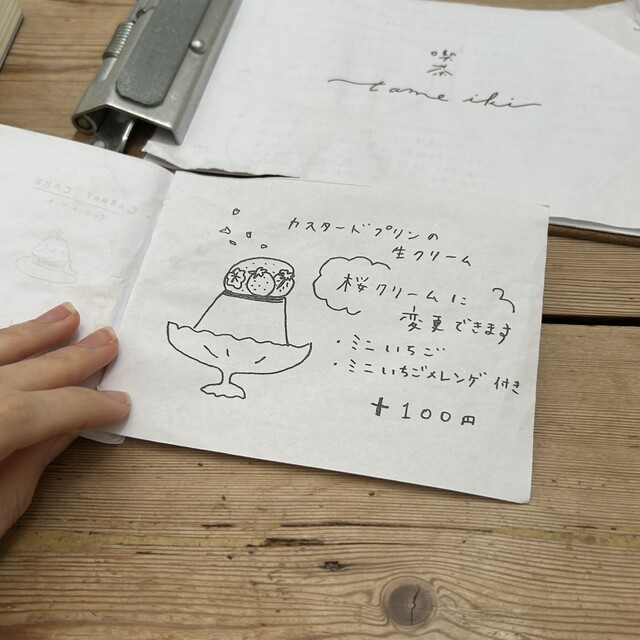 喫茶
tame iki
CARROT CAKE
カスタードプリンの
生クリーム
桜クリームに
変更できます
・ミニいちご
・ミニいちごメレンゲ付き
+100円